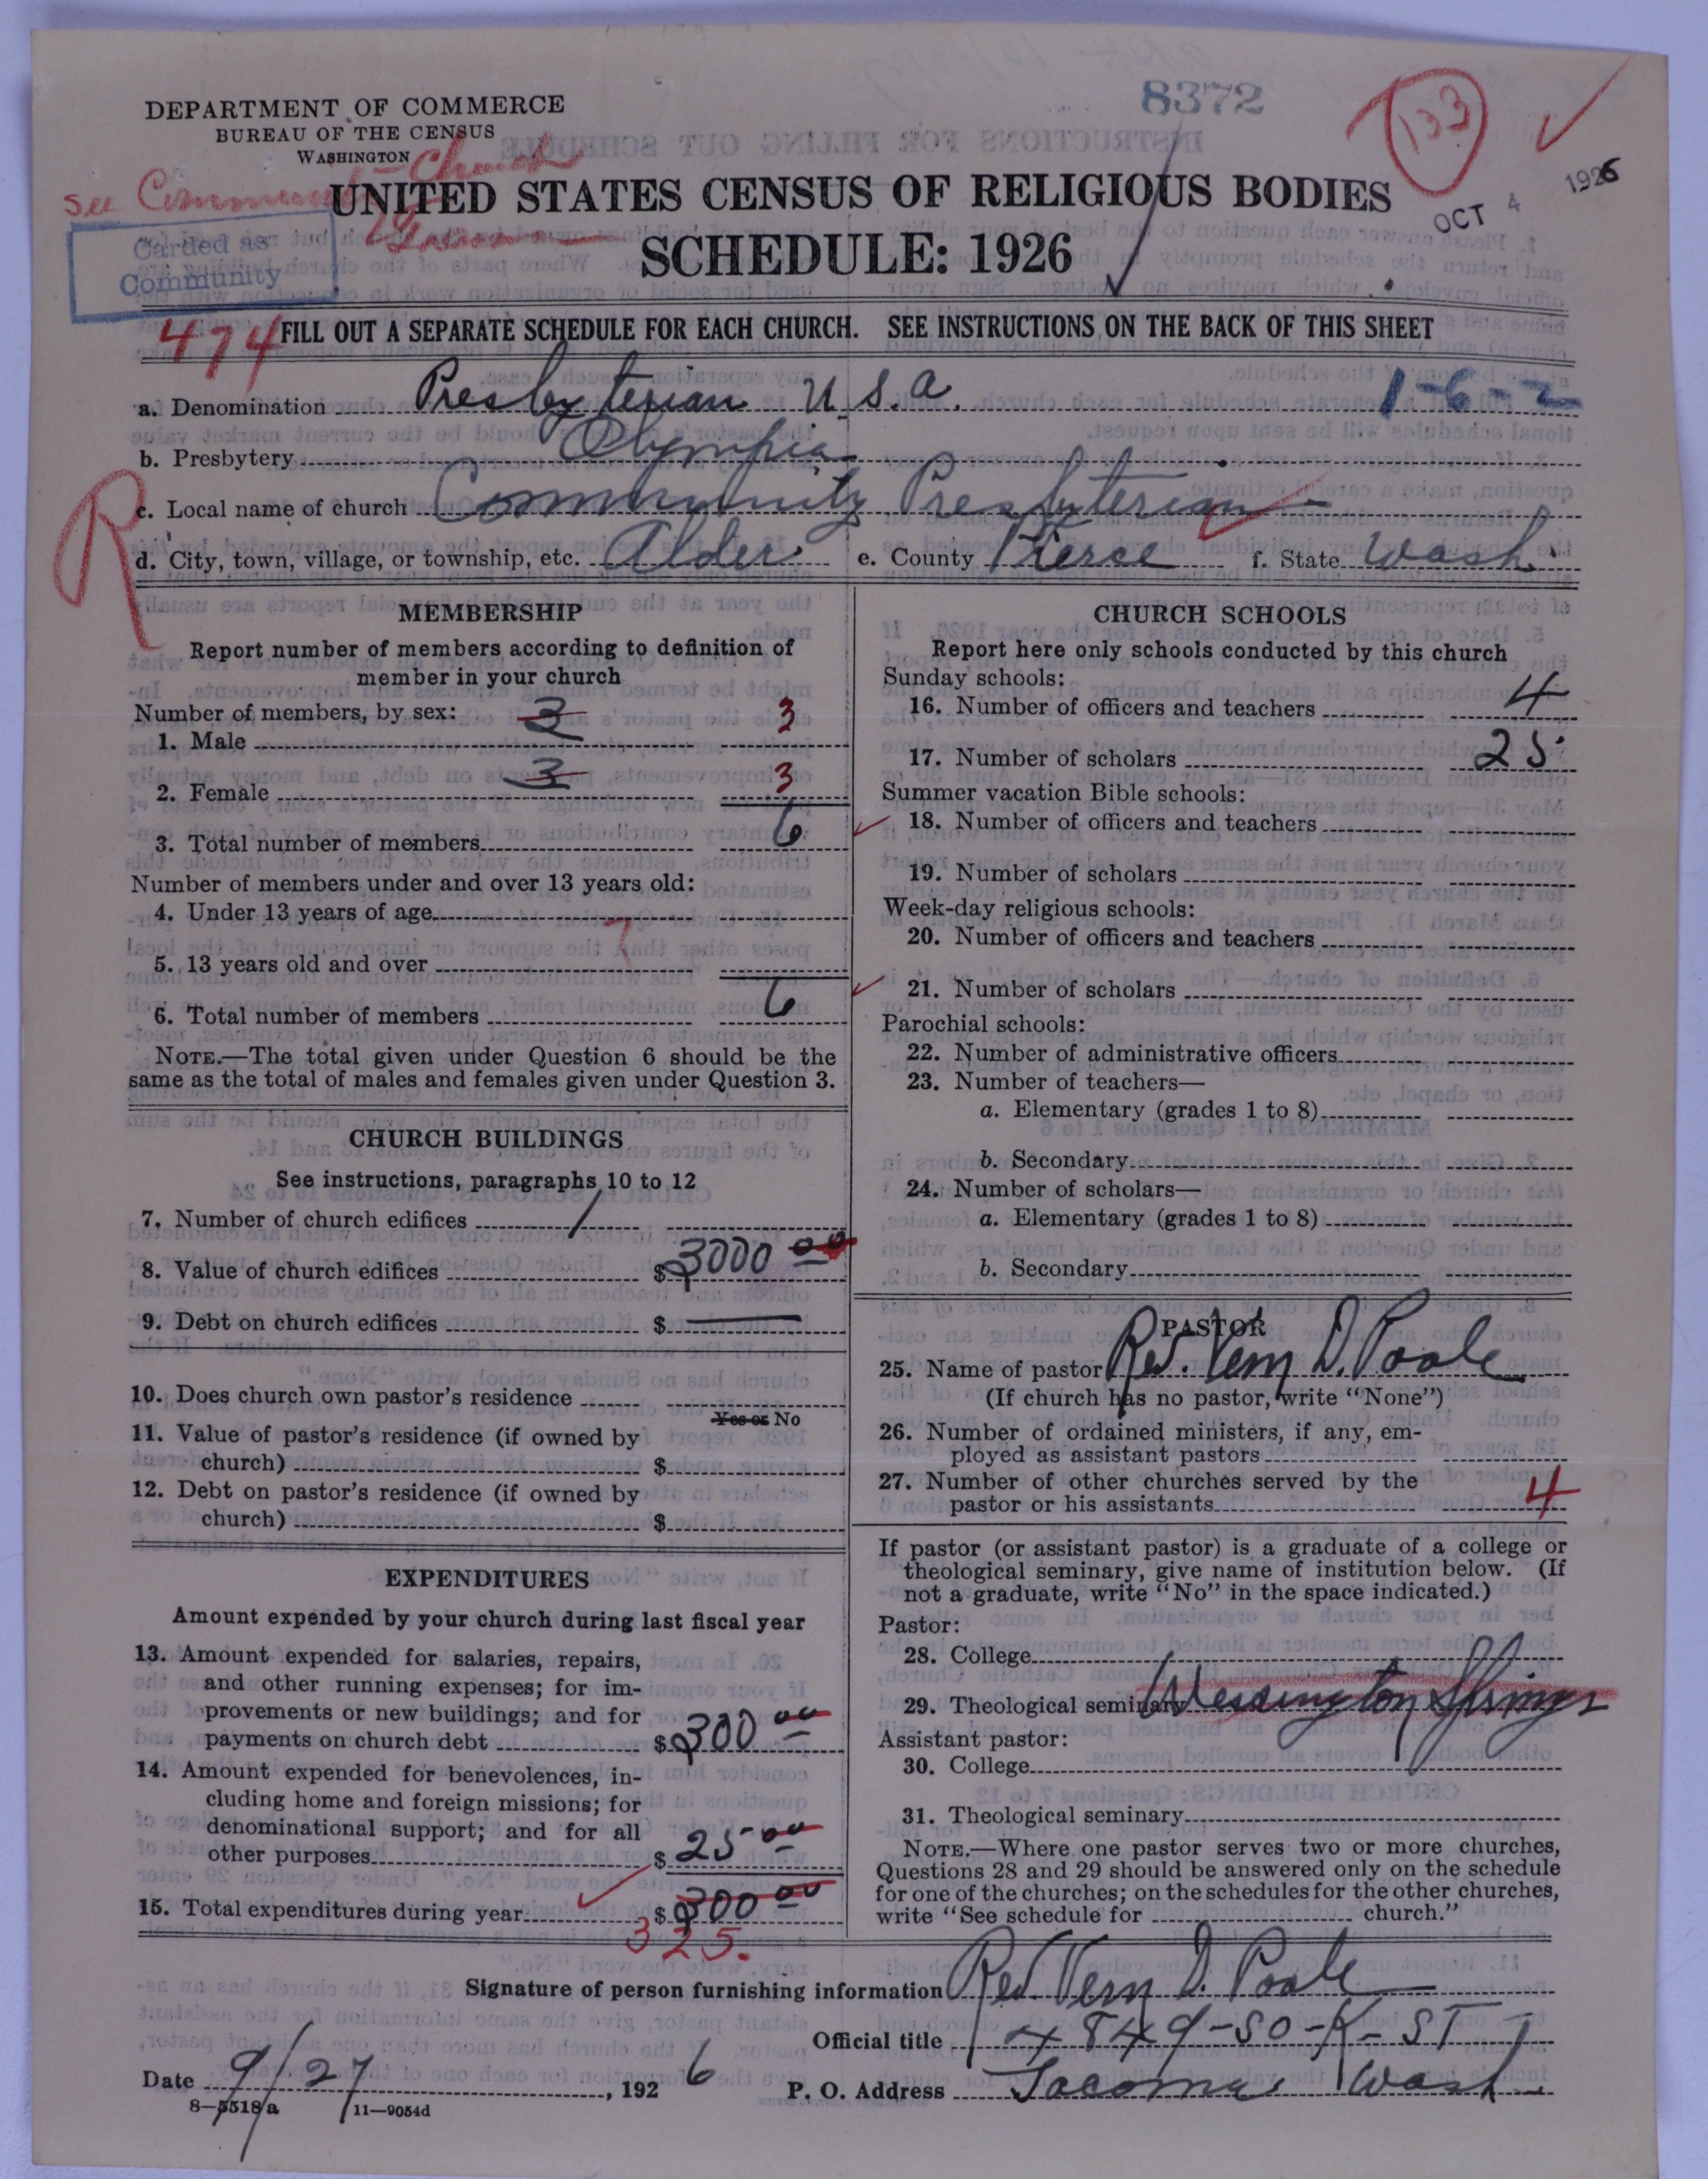 8372
133
DEPARTMENT OF COMMERCE
BUREAU OF THE CENSUS
WASHINGTON
see Community Church
UNITED STATES CENSUS OF RELIGIOUS BODIES
OCT 4 1926
Carded as
Community
SCHEDULE: 1926
474 FILL OUT A SEPARATE SCHEDULE FOR EACH CHURCH. SEE INSTRUCTIONS ON THE BACK OF THIS SHEET
a. Denomination Presbyterian U.S.A. 1-6-2
b. Presbytery Olympia
R
c. Local name of church Community Presbyterian
d. City, town, village, or township, etc. Alder e. County Pierce f. State Wash.
MEMBERSHIP
Report number of members according to definition of
member in your church
Number of members, by sex:
1. Male 3 3
2. Female 3 3
3. Total number of members 6
Number of members under and over 13 years old:
4. Under 13 years of age
7
5. 13 years old and over
6. Total number of members 6
NOTE.—The total given under Question 6 should be the
same as the total of males and females given under Question 3.
CHURCH BUILDINGS
See instructions, paragraphs 10 to 12
7. Number of church edifices 1
8. Value of church edifices $ 3000 00
9. Debt on church edifices $ —
10. Does church own pastor's residence
Yes or No
11. Value of pastor's residence (if owned by
church) $
12. Debt on pastor's residence (if owned by
church) $
EXPENDITURES
Amount expended by your church during last fiscal year
13. Amount expended for salaries, repairs,
and other running expenses; for im-
provements or new buildings; and for
payments on church debt $ 300 00
14. Amount expended for benevolences, in-
cluding home and foreign missions; for
denominational support; and for all
other purposes $ 25 00
15. Total expenditures during year $ 300 00
325.
CHURCH SCHOOLS
Report here only schools conducted by this church
Sunday schools:
16. Number of officers and teachers 4
17. Number of scholars 25
Summer vacation Bible schools:
18. Number of officers and teachers
19. Number of scholars
Week-day religious schools:
20. Number of officers and teachers
21. Number of scholars
Parochial schools:
22. Number of administrative officers
23. Number of teachers—
a. Elementary (grades 1 to 8)
b. Secondary
24. Number of scholars—
a. Elementary (grades 1 to 8)
b. Secondary
PASTOR
25. Name of pastor Rev. Vern D. Poole
(If church has no pastor, write "None")
26. Number of ordained ministers, if any, em-
ployed as assistant pastors
27. Number of other churches served by the
pastor or his assistants 4
If pastor (or assistant pastor) is a graduate of a college or
theological seminary, give name of institution below. (If
not a graduate, write "No" in the space indicated.)
Pastor:
28. College
29. Theological seminary Wessington Springs
Assistant pastor:
30. College
31. Theological seminary
NOTE.—Where one pastor serves two or more churches,
Questions 28 and 29 should be answered only on the schedule
for one of the churches; on the schedules for the other churches,
write "See schedule for church."
Signature of person furnishing information Rev. Vern D. Poole
Official title 4849-SO-K-ST
Date 9/27, 1926 P. O. Address Tacoma Wash.
8—5518a 11—9054d